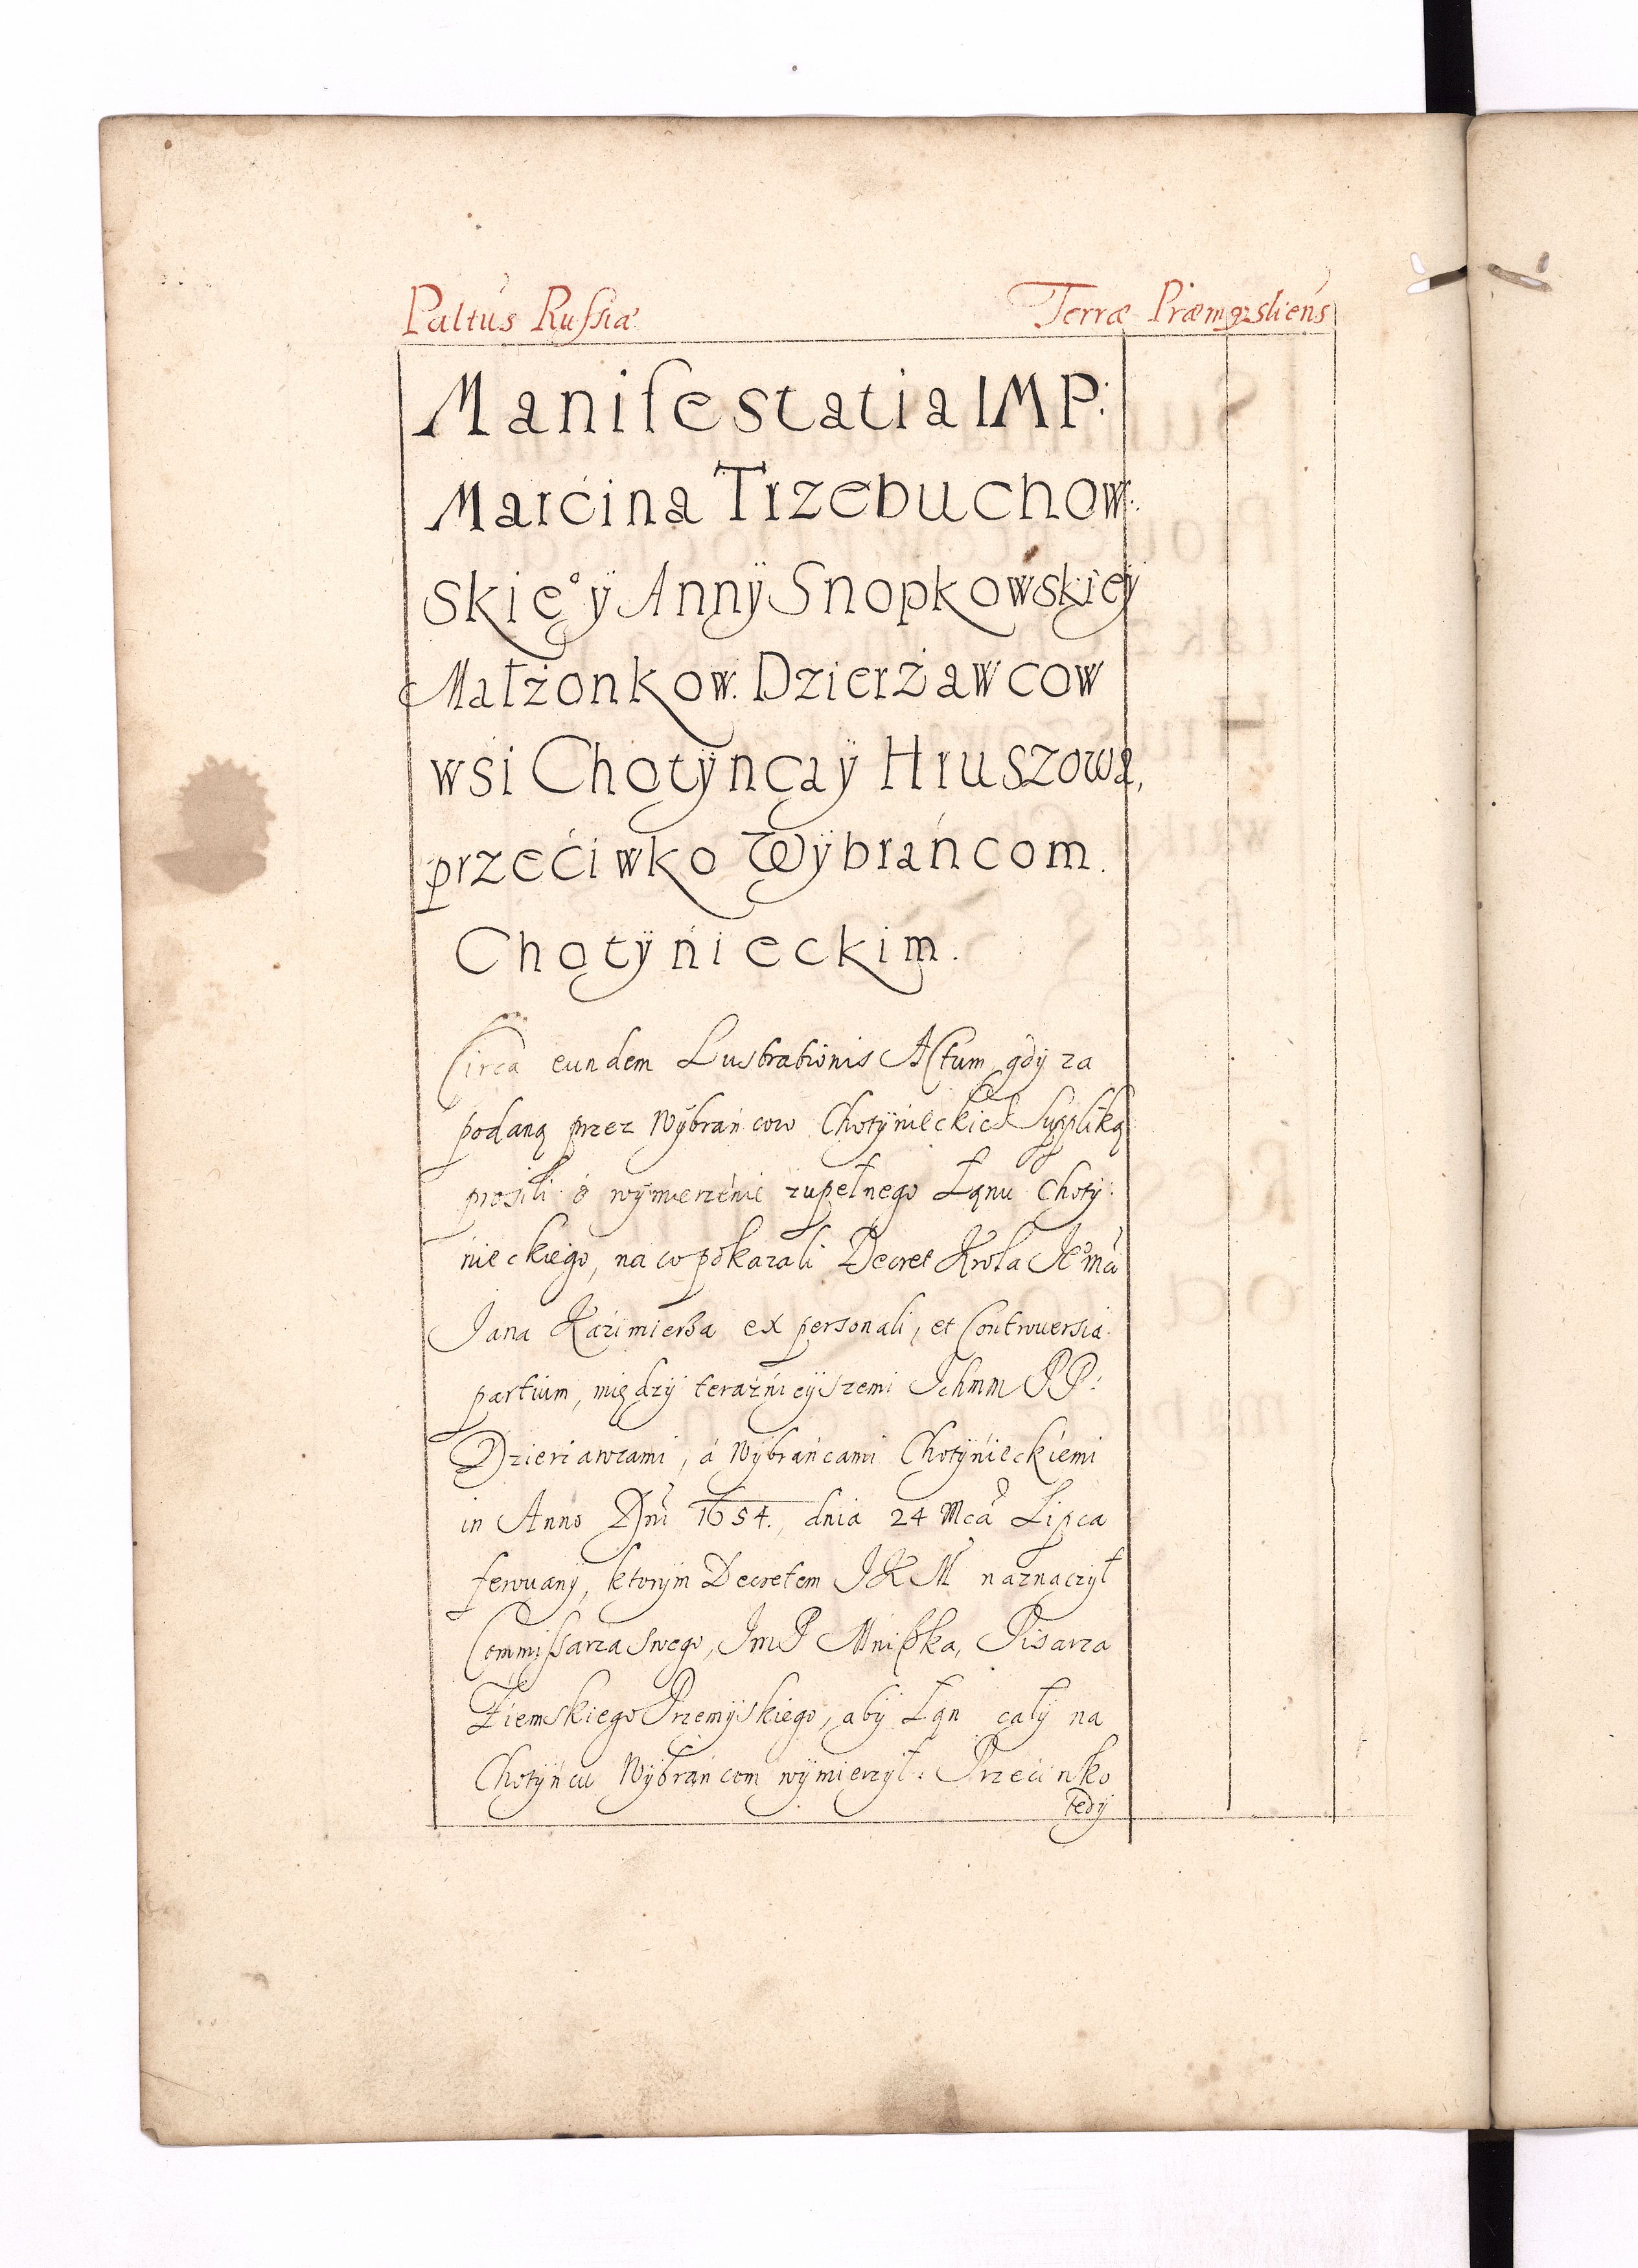 Paltus Russiæ Terræ Præmysliens
Manifestatia IMP:
Marćina Trzebuchow:
skieº ÿ Annÿ Snopkowskieÿ
Małżonkow. Dzierżawcow
wsi Chotÿnca ÿ Hruszowa,
przećiwko Wÿbrańcom.
Chotÿnieckim.
Circa eundem Lustrationis Actum, gdÿ za
podaną przez Wÿbrańcow Chotÿnieckich Supplikę
prosili o wÿmierzenie zupełnego Łanu Chotÿ:
nieckiego, na co pokazali Decret Krola Jeº Mći
Jana Kazimierßa ex personali, et Controuersia
partium, międzÿ teraźnieÿszemi Ichmm PP:
Dzierżawcami, á Wÿbrańcami Chotÿnieckiemi
in Anno Dni 1654. dnia 24 Mca Lipca
ferowanÿ, ktorÿm Decretem JKM naznaczÿł
Commissarza swego, ImP Mnißka, Pisarza
Ziemskiego Przemÿskiego, abÿ Łan całÿ na
Chotÿńcu Wÿbrańcom wÿmierzÿł: Przeciwko
tedÿ